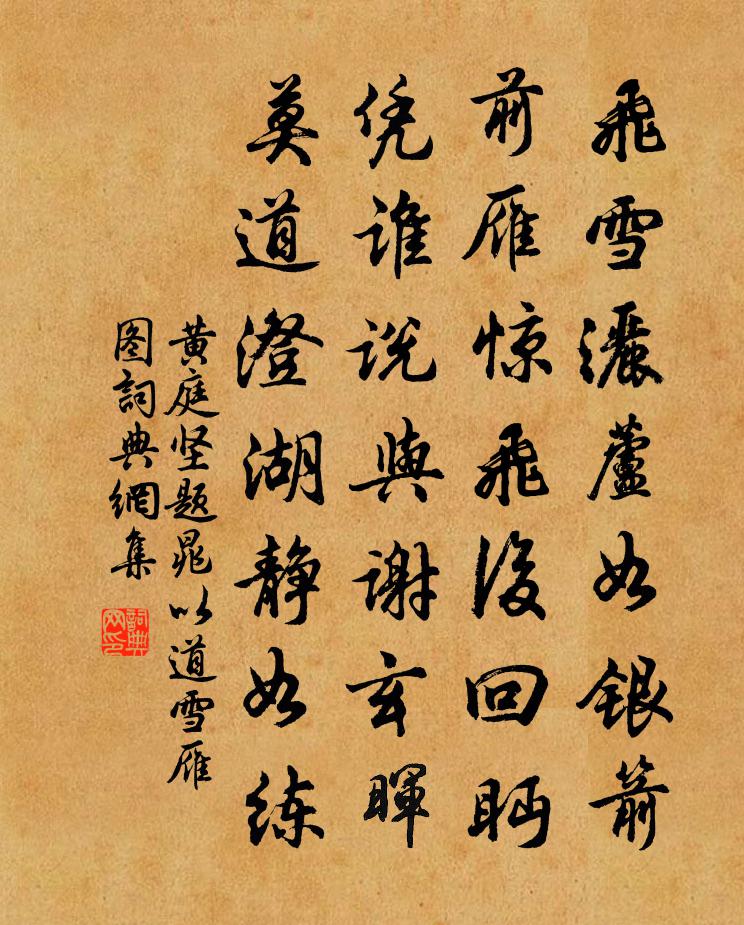 飛雪灑蘆如銀箭
前雁惊飛後回眄
凭誰説與謝玄暉
莫道澄湖静如练
黄庭坚题晁以道雪雁
图詞典網集
詞典网印